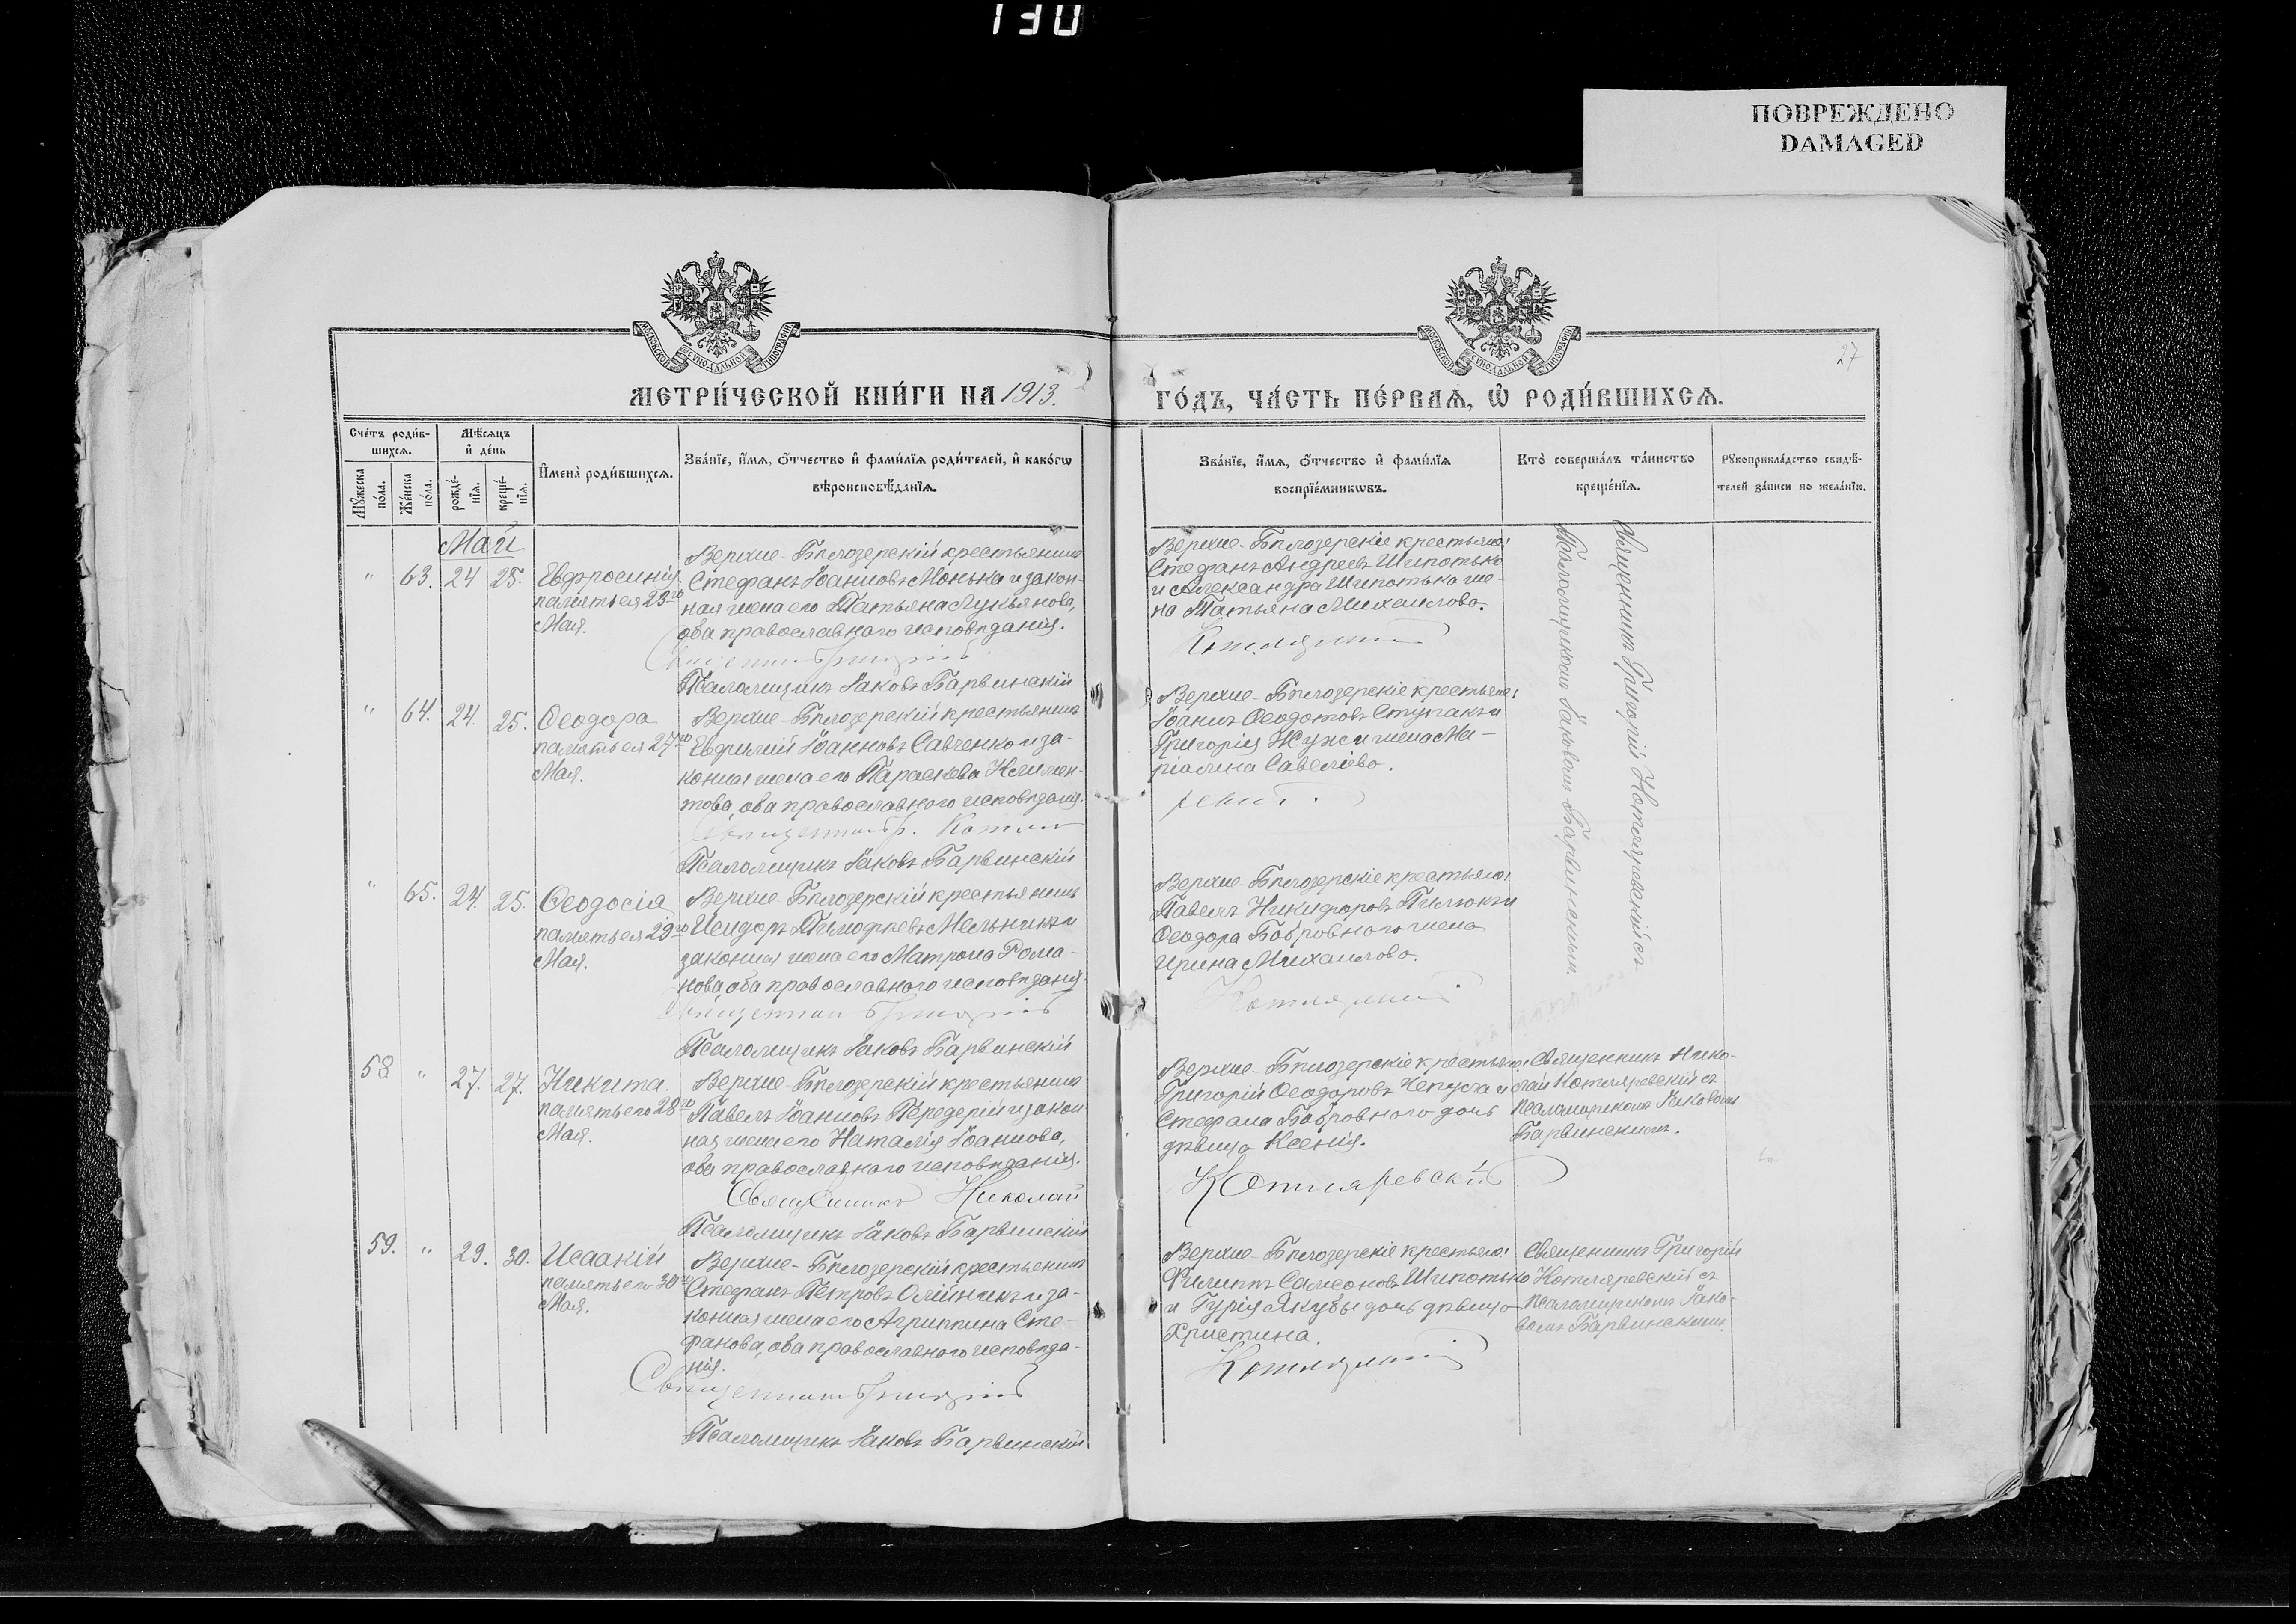 130
ПОВРЕЖДЕНО
DAMAGED
27
МОСКОВСКОЙ СУНОДАЛЬНОЙ ТИПОГРАФІИ
МОСКОВСКОЙ СУНОДАЛЬНОЙ ТИПОГРАФІИ
МЕТРИ́ЧЕСКОЙ КНИ́ГИ НА 1913.
ГО́ДЪ, ЧА́СТЬ ПЕ́РВАѦ, Ѡ҆ РОДИ́ВШИХСѦ.
Сче́тъ роди́в-
шихсѧ.
Мѣ́сѧцъ
и҆ де́нь
Мꙋ́жеска
по́ла.
Же́нска
по́ла.
рожде́-
нїѧ.
креще́-
нїѧ.
И҆мена̀ роди́вшихсѧ.
Зва́нїе, и҆́мѧ, ѻ҆́тчество и҆ фами́лїѧ роди́телей, и҆ како́гѡ
вѣроисповѣ́данїѧ.
Зва́нїе, и҆́мѧ, ѻ҆́тчество и҆ фами́лїѧ
воспрїе́мникѡвъ.
Кто̀ соверша́лъ та́инство
креще́нїѧ.
Рꙋкоприкла́дство свидѣ́-
телей за́писи по жела́нїю.
Май
" 63. 24 25. Евфросинія
память ея 25го
Мая.
Верхне-Бѣлозерскій крестьянинъ
Стефанъ Іоанновъ Монька и закон-
ная жена его Татьяна Лукьянова,
оба православнаго исповѣданія.
Священникъ Григорій
Псаломщикъ Іаковъ Барвинскій
Верхне-Бѣлозерскіе крестьяне:
Стефанъ Андреевъ Шипотько
и Александра Шипотька же-
на Татьяна Михаилова.
Котляревскій
" 64. 24. 25. Ѳеодора
память ея 27го
Мая.
Верхне-Бѣлозерскій крестьянинъ
Евфимій Іоанновъ Савченко и за-
конная жена его Параскева Климен-
това, оба православнаго исповѣданія.
Священникъ Гр. Котля
Псаломщикъ Іаковъ Барвинскій
Верхне-Бѣлозерскіе крестьяне:
Іоаннъ Ѳеодотовъ Ступакъ и
Григорія Жука жена Ма-
ріамна Савеліева.
ревскій
" 65. 24. 25. Ѳеодосія
память ея 29го
Мая.
Верхне-Бѣлозерскій крестьянинъ
Исидоръ Тимофеевъ Мельникъ и
законная жена его Матрона Рома-
нова, оба православнаго исповѣданія.
Священникъ Григорій
Псаломщикъ Іаковъ Барвинскій
Верхне-Бѣлозерскіе крестьяне:
Павелъ Никифоровъ Пилюкъ и
Ѳеодора Бобровного жена
Ирина Михаилова.
Котляревскій
Священникъ Григорій Котляревскій съ
Псаломщикомъ Іаковомъ Барвинскимъ.
58 " 27. 27. Никита.
память его 28го
Мая.
Верхне-Бѣлозерскій крестьянинъ
Павелъ Іоанновъ Передерій и закон
ная жена его Наталія Іоаннова,
оба православнаго исповѣданія.
Священникъ Николай
Псаломщикъ Іаковъ Барвинскій
Верхне-Бѣлозерскіе крестьяне:
Григорій Ѳеодоровъ Чепуса и
Стефана Бобровного дочь
дѣвица Ксенія.
Котляревскій
Священникъ Нико-
лай Котляревскій съ
псаломщикомъ Іаковомъ
Барвинскимъ.
59. " 29. 30. Исаакій
память его 30го
Мая.
Верхне-Бѣлозерскій крестьянинъ
Стефанъ Петровъ Олійникъ и за-
конная жена его Агриппина Сте-
фанова, оба православнаго исповѣда-
нія.
Священникъ Григорій
Псаломщикъ Іаковъ Барвинскій
Верхне-Бѣлозерскіе крестьяне:
Филиппъ Самсоновъ Шипотько
и Гурія Якубы дочь дѣвица
Христина.
Котляревскій
Священникъ Григорій
Котляревскій съ
псаломщикомъ Іако-
вомъ Барвинскимъ.